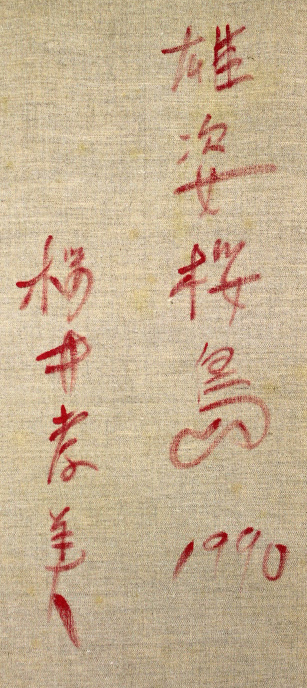 雄姿桜島 1990
桜井孝美